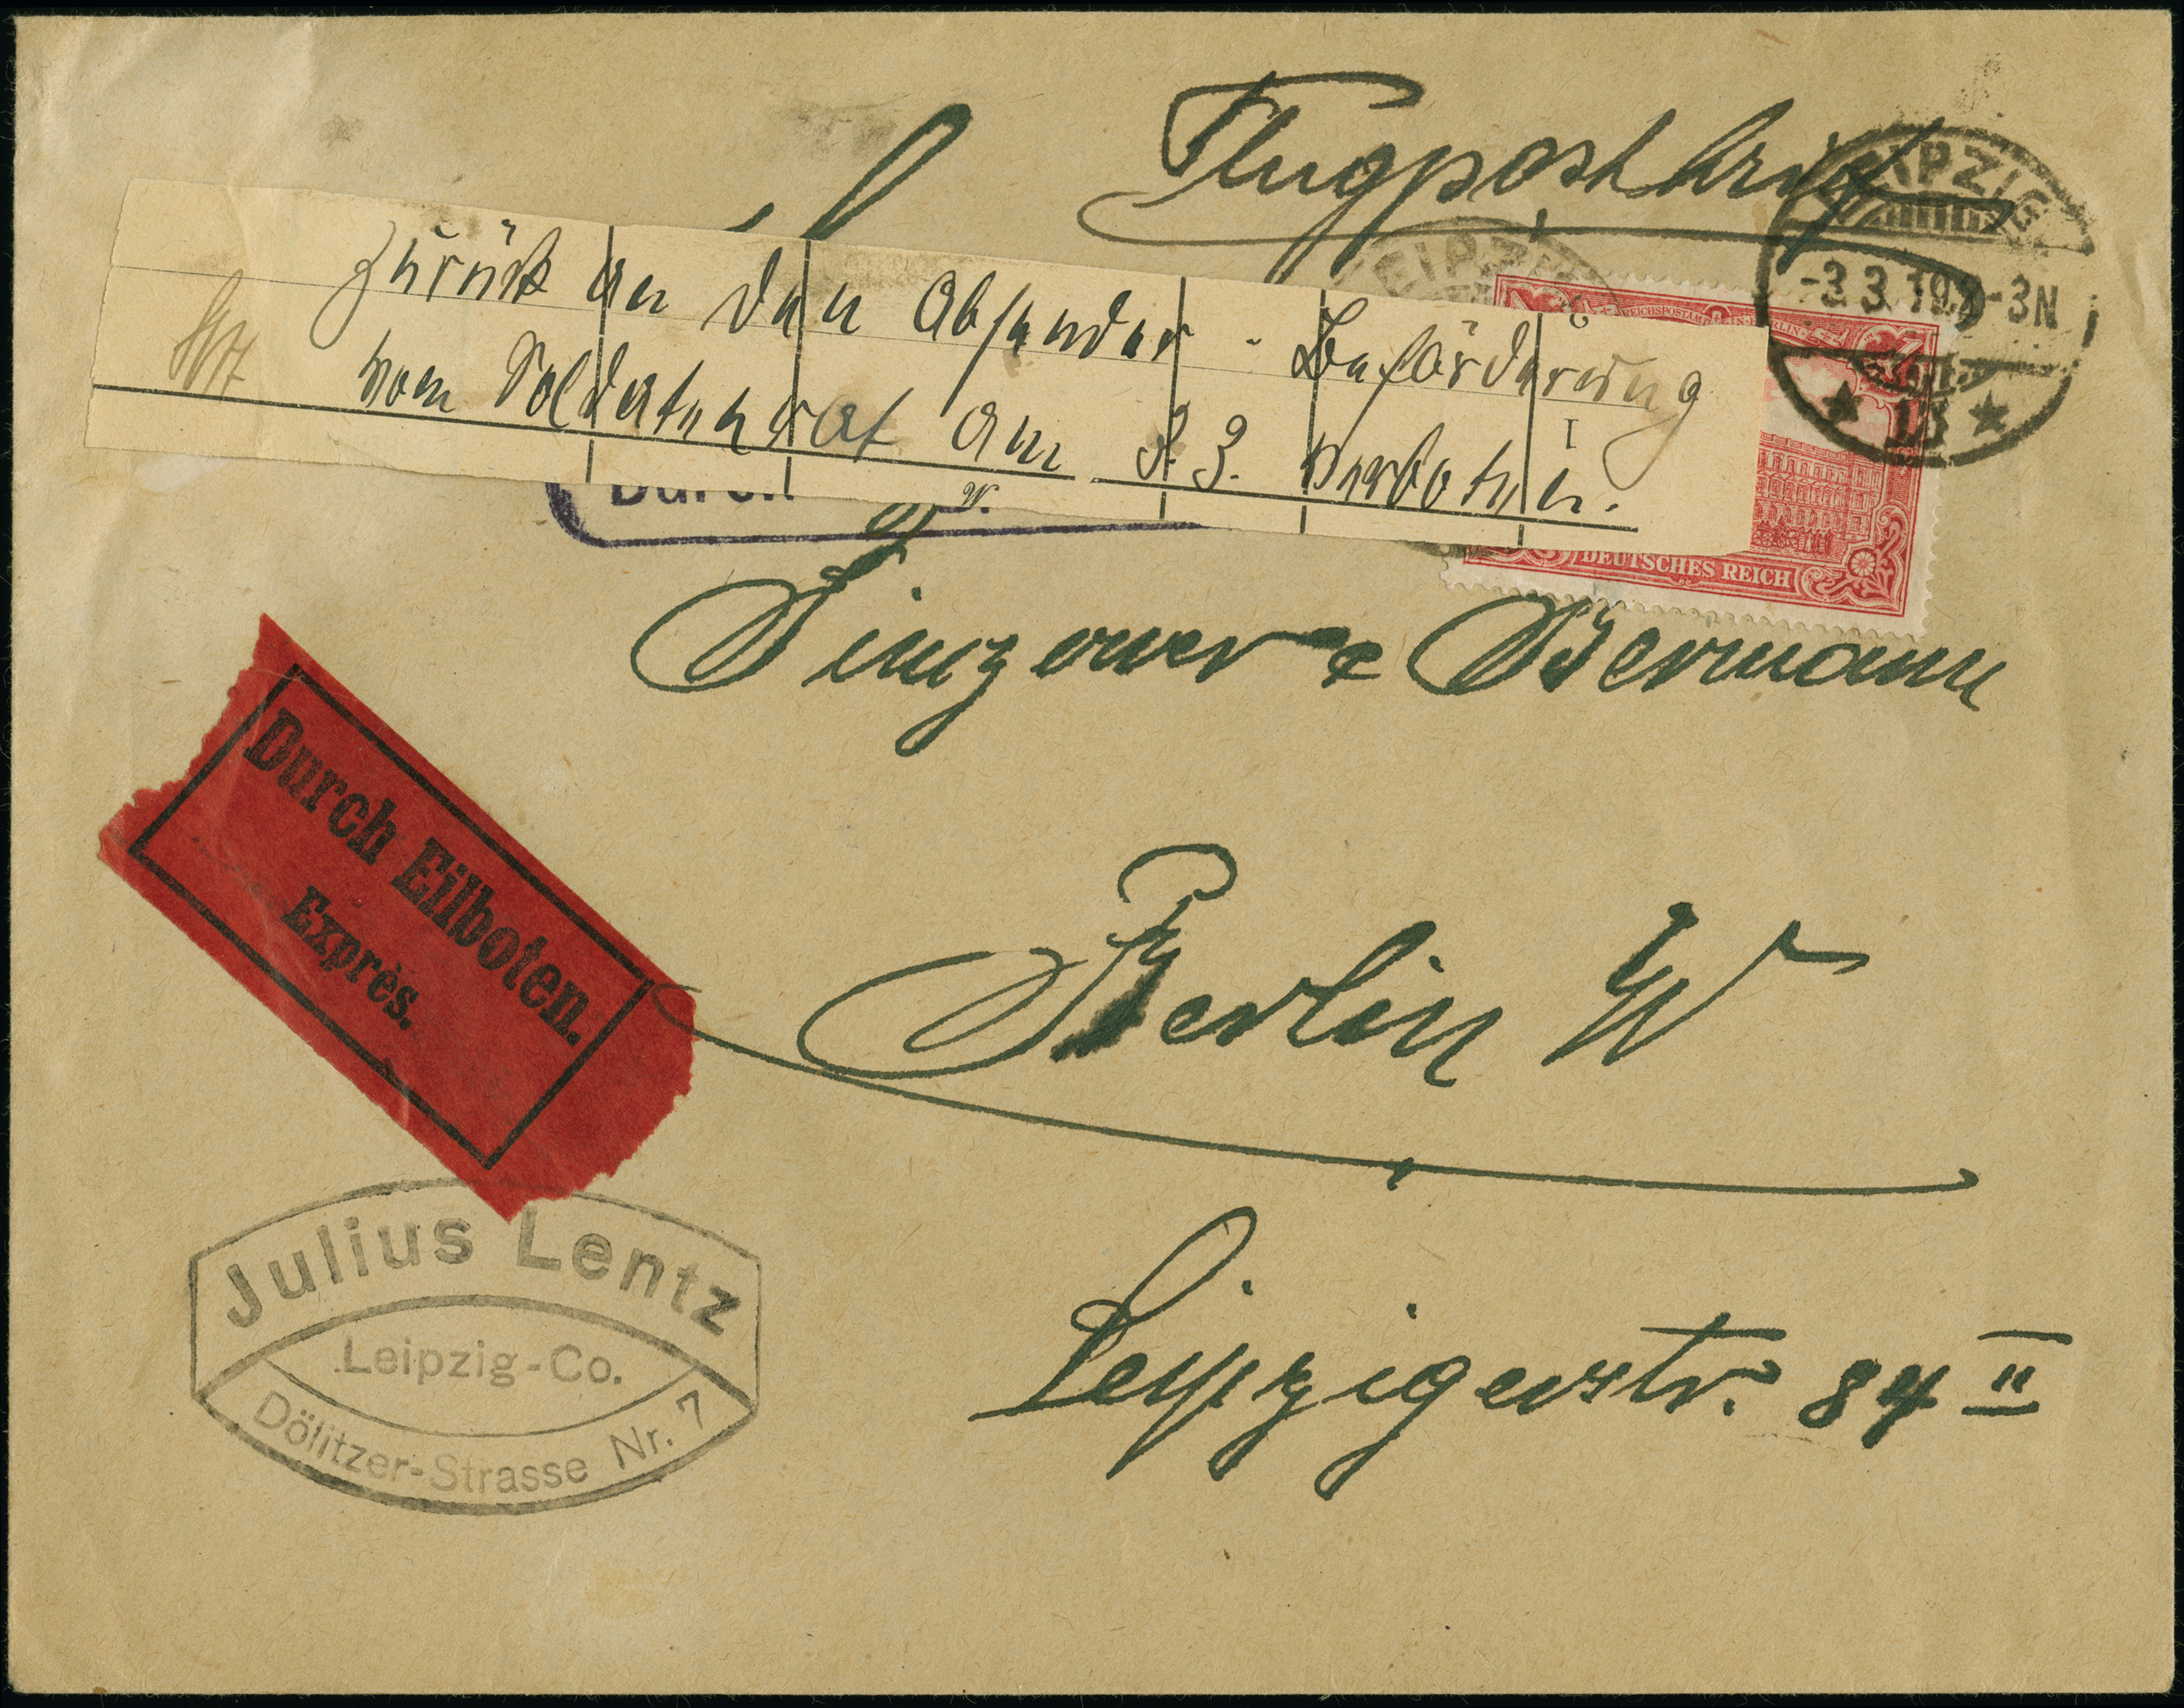 Flugpostbrief
LEIPZIG
-3 3 19 2-3N
* 13 *
LEIPZIG
zurück an den Absender - Beförderung
vom Soldatenrat am 3.3. verboten.
Durch
REICHSPOSTAMT
DEUTSCHES REICH
& Bermann
Durch Eilboten.
Exprès.
Berlin W
Leipzigerstr. 84 II
Julius Lentz
Leipzig-Co.
Dölitzer-Strasse Nr. 7